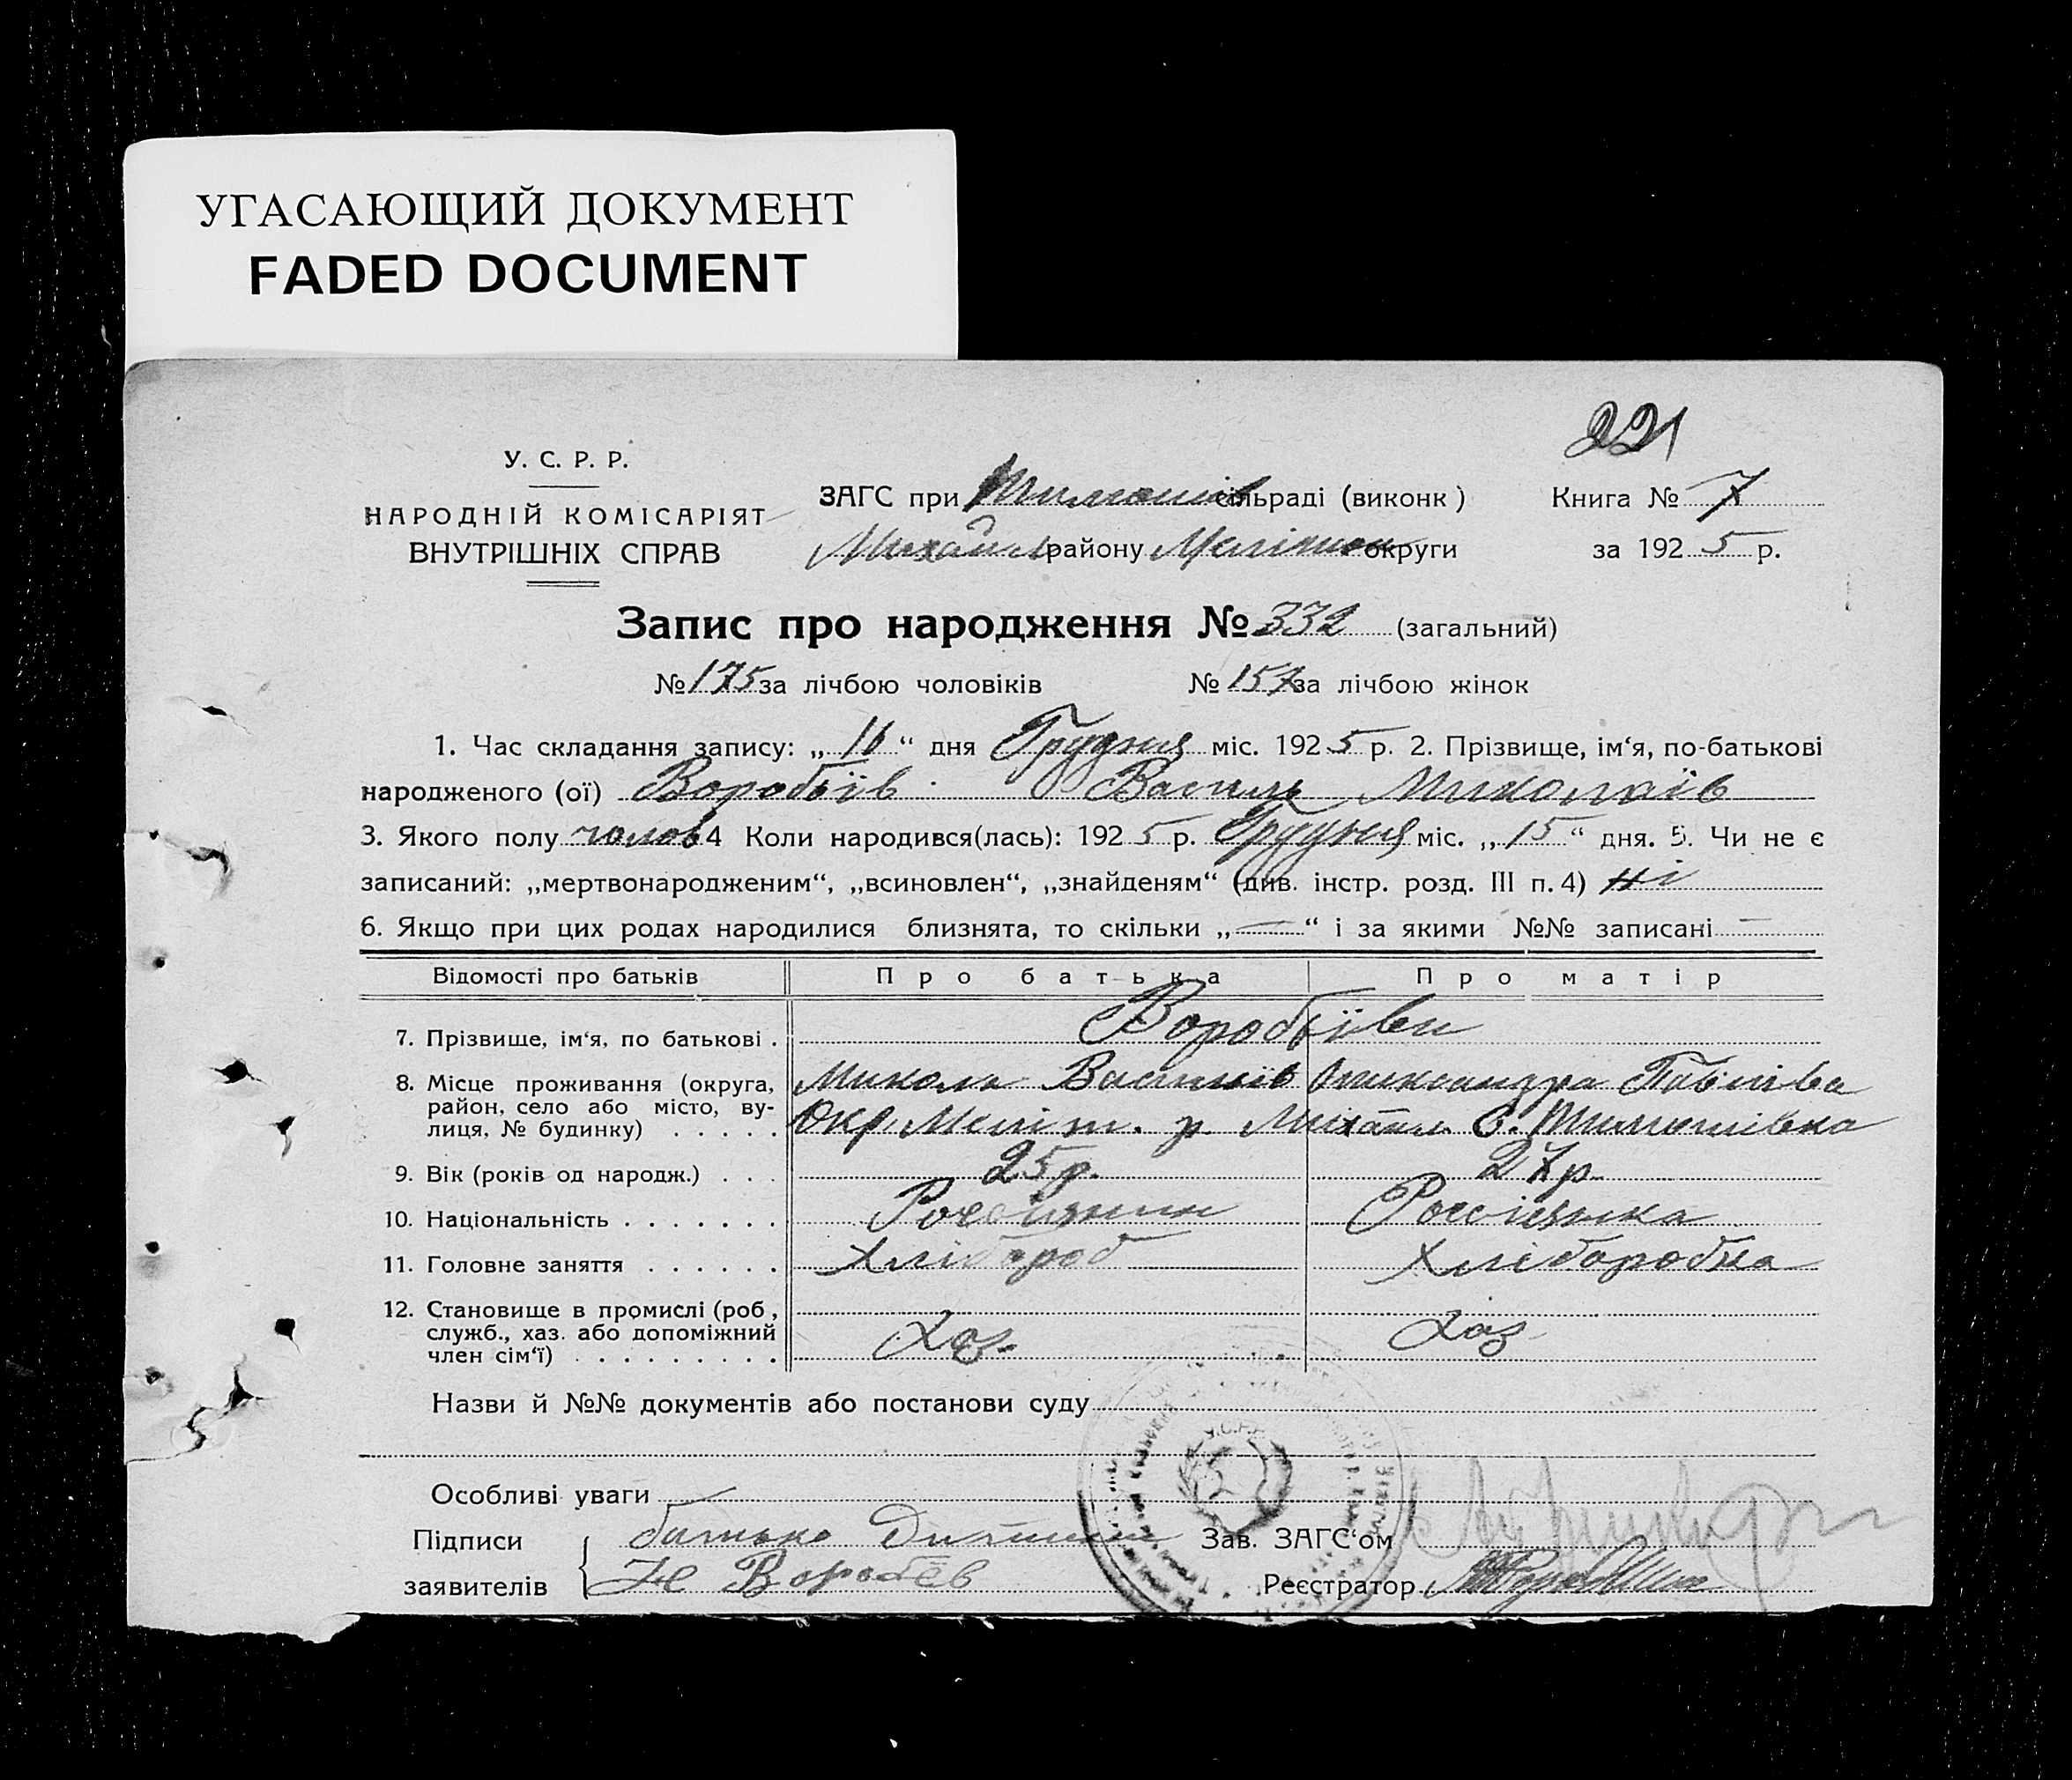 УГАСАЮЩИЙ ДОКУМЕНТ
FADED DOCUMENT
221
У. С. Р. Р.
НАРОДНІЙ КОМІСАРІЯТ
ВНУТРІШНІХ СПРАВ
ЗАГС при Тимошів сільраді (виконк)
Михайл району Меліт округи
Книга № 7
за 1925 р.
Запис про народження № 332 (загальний)
№ 175 за лічбою чоловіків № 157 за лічбою жінок
1. Час складання запису: „16“ дня Грудня міс. 1925 р. 2. Прізвище, ім‘я, по-батькові
народженого (ої) Воробьїв Василь Миколаїв
3. Якого полу чолов 4 Коли народився(лась): 1925 р. Грудня міс. „15“ дня. 5. Чи не є
записаний: „мертвонародженим“, „всиновлен“, „знайденям“ (див. інстр. розд. III п. 4) ні
6. Якщо при цих родах народилися близнята, то скільки „—“ і за якими №№ записані —
Відомості про батьків Про батька Про матір
7. Прізвище, ім‘я, по батькові . Воробьїви
8. Місце проживання (округа, Микола Василів Олександра Павлівна
район, село або місто, ву-
лиця, № будинку) . . . . . Окр. Меліт. р. Михайл. С. Тимошівка
9. Вік (років од народж.) . . . 25 р. 27 р.
10. Національність . . . . . . . Россиянин Россіянка
11. Головне заняття . . . . . . Хлібороб Хліборобка
12. Становище в промислі (роб.,
служб., хаз. або допоміжний Хаз. Хаз
член сім‘ї) . . . . . . . . .
Назви й №№ документів або постанови суду
Особливі уваги
Підписи батько Дитини Зав. ЗАГС‘ом
заявителів Н Воробёв Реєстратор
У.С.Р.Р.